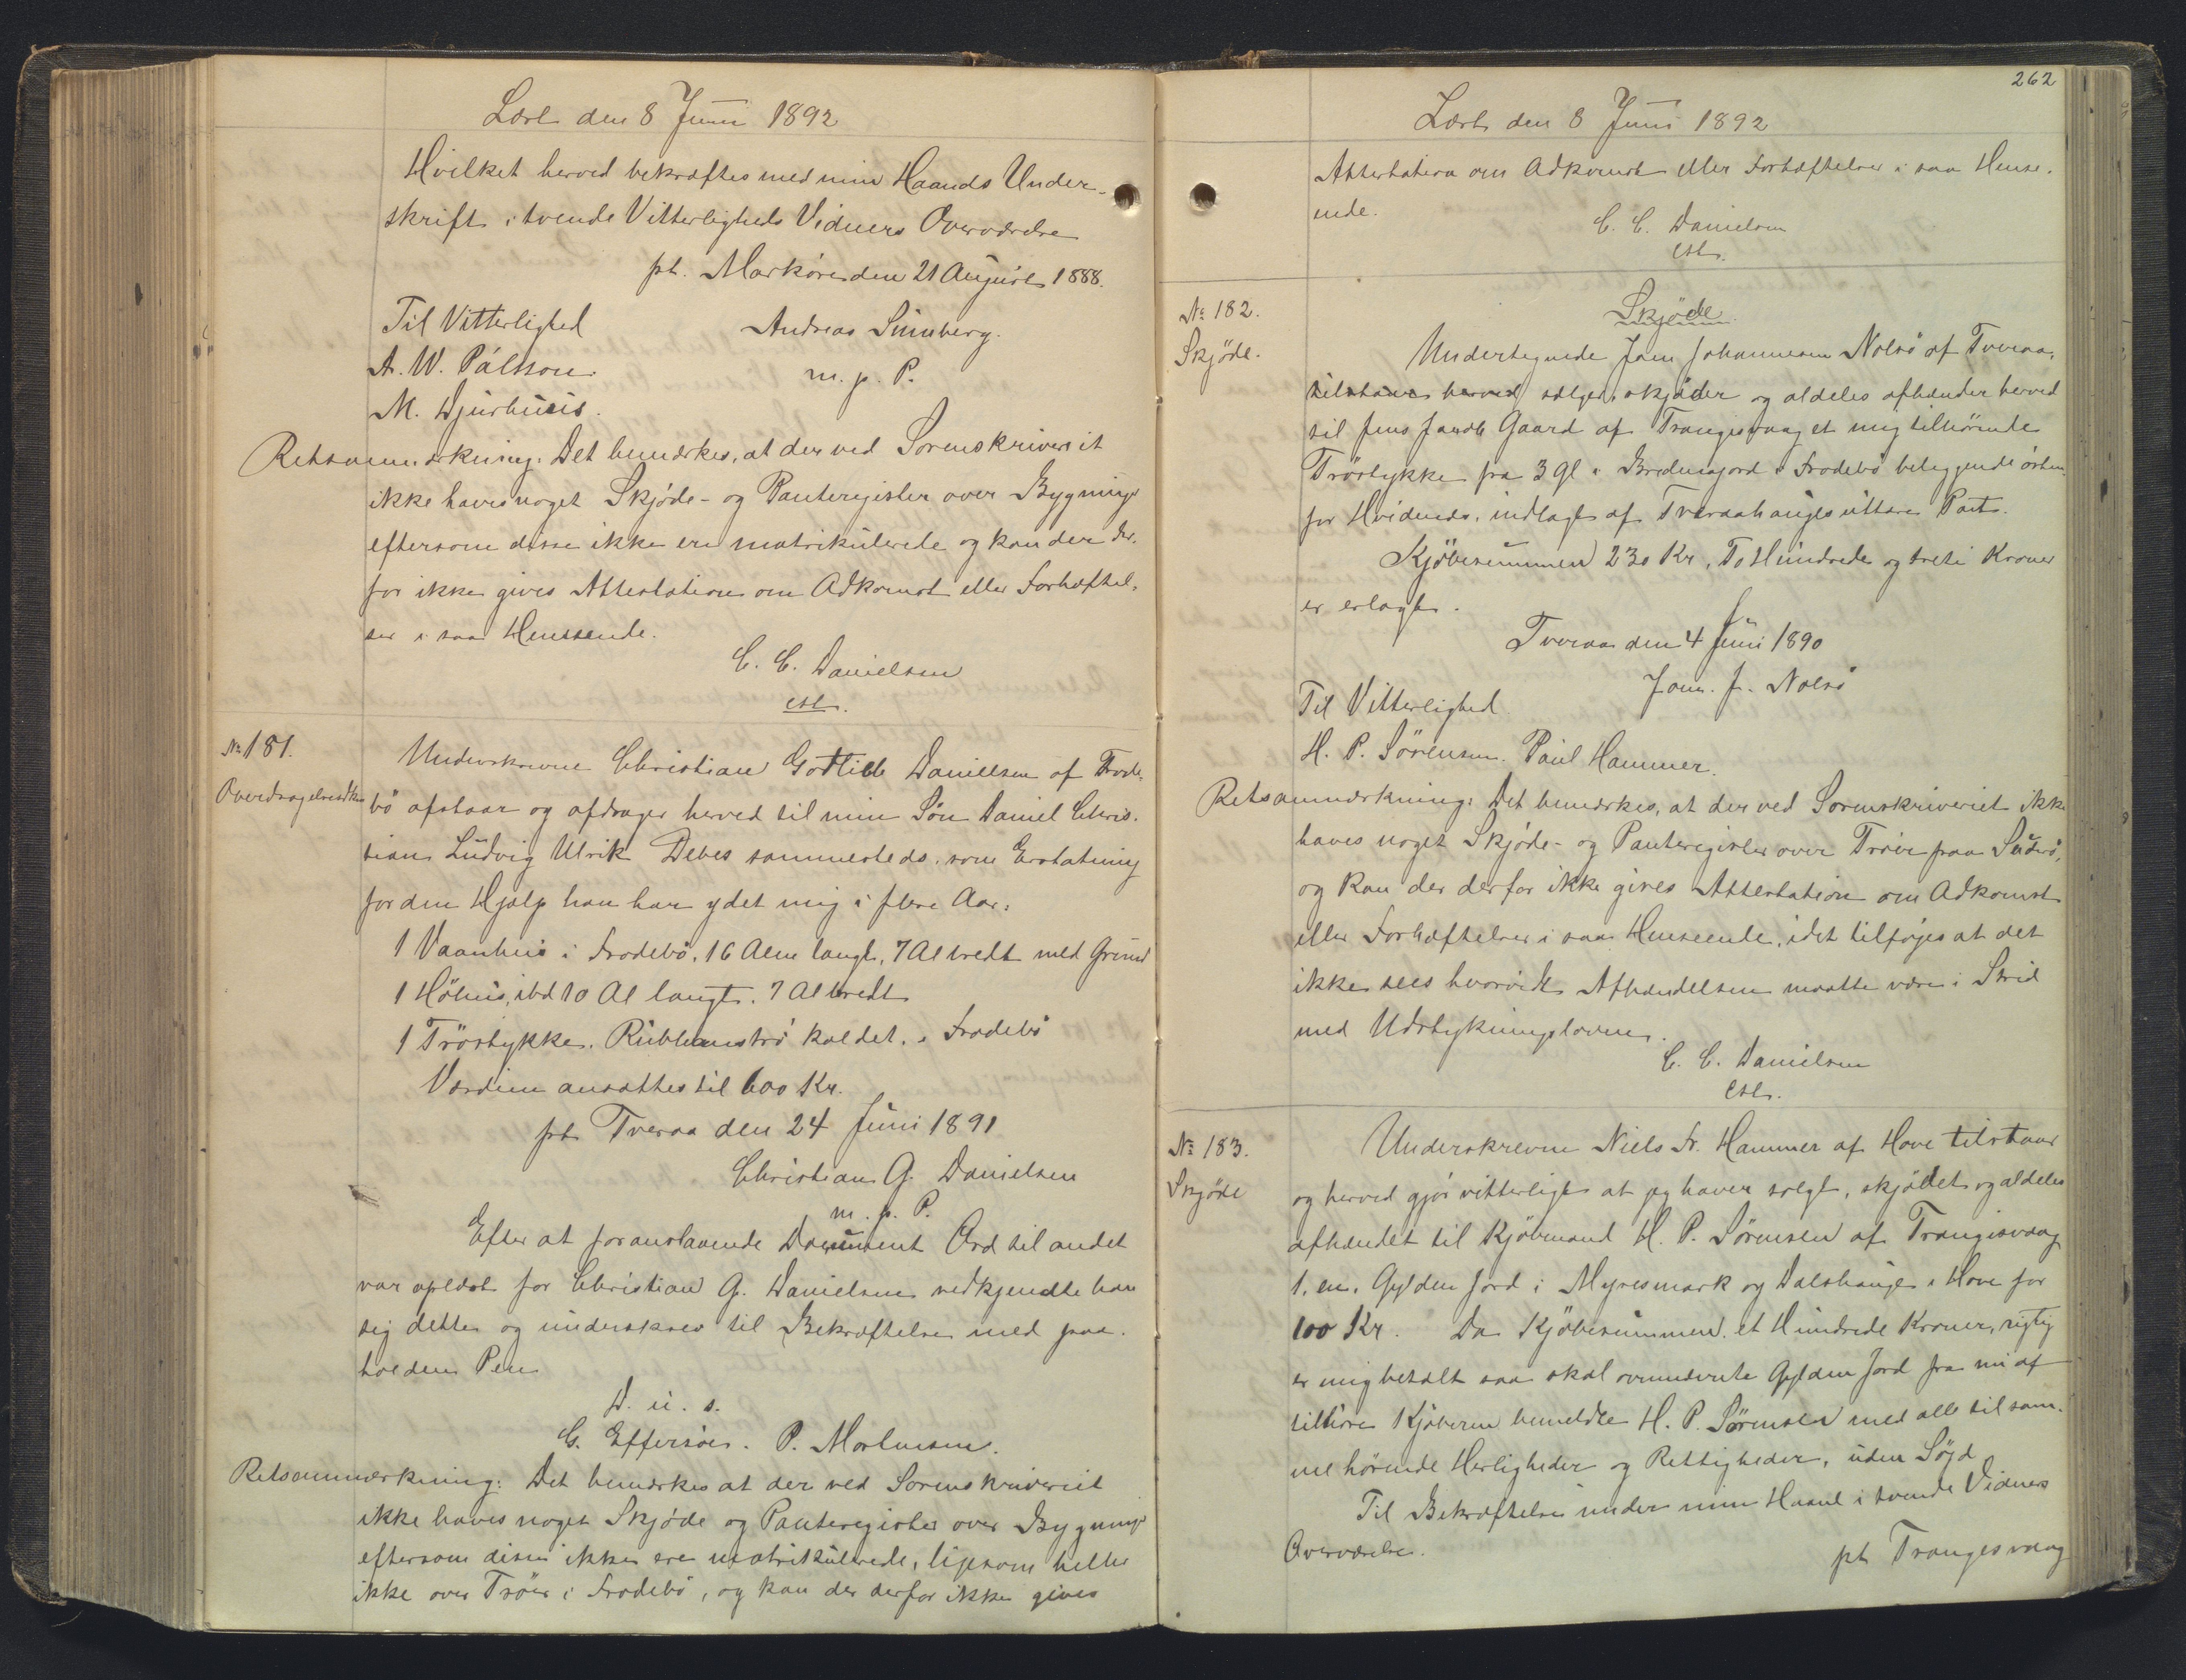 Læst den 8 Juni 1892
Hvilket herved bekræftes med min Haands Under-
skrift i tvende Vitterligheds Vidners Overværelse
pt. Markøre den 21 August 1888.
Til Vitterlighed
Andreas Sumberg.
A. W. Pálsson.
m. p. P.
M. Djurhuus.
Retsanmærkning: Det bemærkes, at der ved Sorenskriveriet
ikke haves noget Skjöde- og Panteregister over Bygninger
eftersom disse ikke ere matrikulerede og kan der der-
for ikke gives Attestation om Adkomst eller Forhæftel-
ser i saa Henseende.
C. C. Danielsen
cst.
No 181.
Overdragelsesdkt
Underskrevne Christian Godtlieb Danielsen af Frode-
bö afstaar og afdrager herved til min Sön Daniel Chris-
tian Ludvig Ulrik Debes sammesteds, som Erstatning
for den Hjælp han har ydet mig i flere Aar:
1 Vaanhus i Frodebö, 16 Alen langt, 7 Al bredt med Grund
1 Höhus, ibd 10 Al langt. 7 Al bredt
1 Tröstykke, kaldet, i Frodebö
Værdien ansættes til 600 Kr.
pt Tveraa den 24 Juni 1891
Christian G. Danielsen
m. p. P.
Efter at foranstaaende Document Ord til andet
var oplæst for Christian G. Danielsen vedkjendte han
sig dette og underskrev til Bekræftelse med paa-
holden Pen
D. u. s.
G. Effersöe. P. Mortensen.
Retsanmærkning: Det bemærkes at der ved Sorenskriveriet
ikke haves noget Skjöde og Panteregister over Bygninger
eftersom disse ikke ere matrikulerede, ligesom heller
ikke over Tröer i Frodebö, og kan der derfor ikke gives
262
Læst den 8 Juni 1892
Attestation om Adkomst eller Forhæftelser i saa Hense-
ende.
C. C. Danielsen
cst.
No 182.
Skjöde.
Skjöde.
Undertegnede Joen Johannesen Nolsö af Tveraa,
tilstaar herved sælger, skjöder og aldeles afhænder herved
til Jens Jacob Gaard af Trangisvaag et mig tilhörende
Tröstykke fra 3 gl i i Frodebö beliggende östen-
for Hvidenæs, indlagt af Tveraahauges uttare Part.
Kjöbesummen 230 Kr, To Hundrede og treti Kroner
er erlagt.
Tveraa den 4 Juni 1890
Joen. J. Nolsö
Til Vitterlighed
H. P. Sörensen. Paul Hammer.
Retsanmærkning: Det bemærkes, at der ved Sorenskriveriet ikke
haves noget Skjöde- og Panteregister over Tröer paa Suderö,
og kan der derfor ikke gives Attestation om Adkomst
eller Forhæftelser i saa Henseende, idet tilföjes at det
ikke sees hvorvidt Afhændelsen maatte være i Strid
med Udstykningsloven.
C. C. Danielsen
cst.
No 183.
Skjöde
Underskrevne Niels Fr. Hammer af Hove tilstaar
og herved gjör vitterligt at jeg haver solgt, skjödet og aldeles
afhændet til Kjöbmand H. P. Sörensen af Trangisvaag
1, en, Gylden Jord i Myresmark og Dalshauge i Hove for
100 Kr. Da Kjöbesummen, et Hundrede Kroner, rigtig
er mig betalt saa skal ovennævnte Gylden Jord fra nu af
tilhöre Kjöberen bemeldte H. P. Sörensen med alle til sam-
me hörende Herligheder og Rettigheder, uden Söjd
Til Bekræftelse under min Haand i tvende Vidners
Overværelse.
pt Trangesvaag